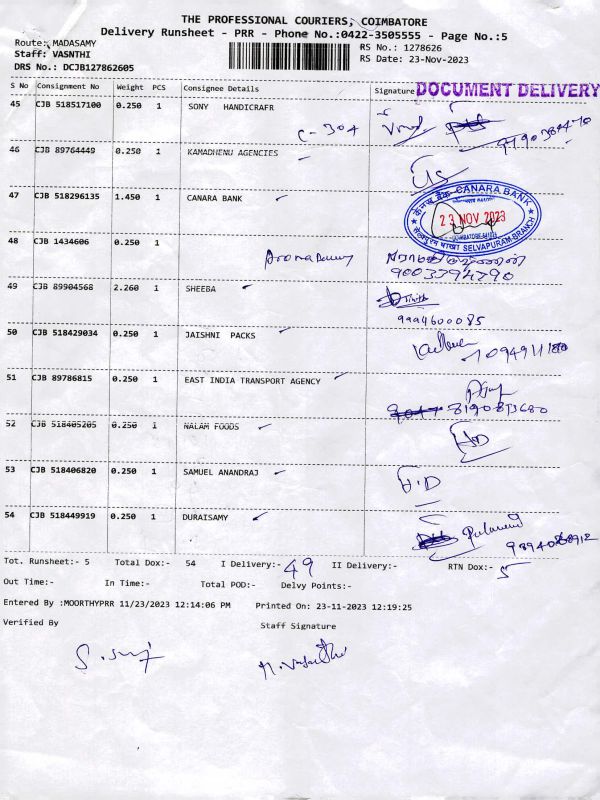 THE PROFESSIONAL COURIERS, COIMBATORE
Delivery Runsheet - PRR - Phone No.:0422-3505555 - Page No.:5
Route: MADASAMY
RS No.: 1278626
Staff: VASNTHI
RS Date: 23-Nov-2023
DRS No.: DCJB127862605
S No Consignment No Weight PCS Consignee Details Signature DOCUMENT DELIVERY
45 CJB 518517100 0.250 1 SONY HANDICRAFR
C-304
46 CJB 89764449 0.250 1 KAMADHENU AGENCIES
47 CJB 518296135 1.450 1 CANARA BANK
CANARA BANK
23 NOV 2023
SELVAPURAM BRANCH
48 CJB 1434606 0.250 1
9003794790
49 CJB 89904568 2.260 1 SHEEBA
9994600085
50 CJB 518429034 0.250 1 JAISHNI PACKS
51 CJB 89786815 0.250 1 EAST INDIA TRANSPORT AGENCY
52 CJB 518405205 0.250 1 NALAM FOODS
53 CJB 518406820 0.250 1 SAMUEL ANANDRAJ
H.D
54 CJB 518449919 0.250 1 DURAISAMY
Tot. Runsheet:- 5 Total Dox:- 54 I Delivery:- 49 II Delivery:- RTN Dox:- 5
Out Time:- In Time:- Total POD:- Delvy Points:-
Entered By :MOORTHYPRR 11/23/2023 12:14:06 PM Printed On: 23-11-2023 12:19:25
Verified By Staff Signature